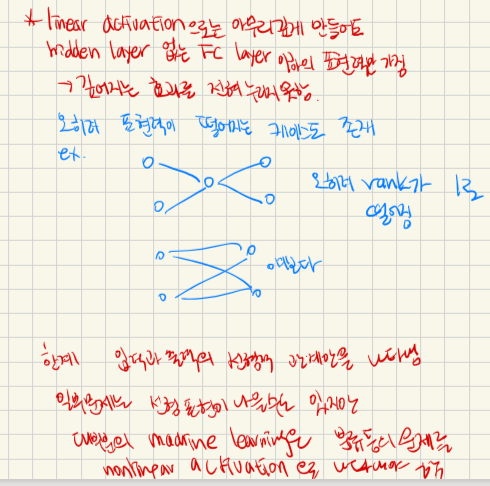 * linear activation으로는 아무리 깊게 만들어도
hidden layer 없는 FC layer 이하의 표현력만 가짐
→ 깊어지는 효과를 전혀 누리지 못함.
오히려 표현력이 떨어지는 케이스도 존재
ex.
오히려 rank가 1로
떨어짐
이보다
한계 입력과 출력의 선형적 관계만을 나타냄
일부 문제는 선형 표현이 나을 수도 있지만
대부분의 machine learning은 분류 등의 문제를
nonlinear activation으로 나타내야 함